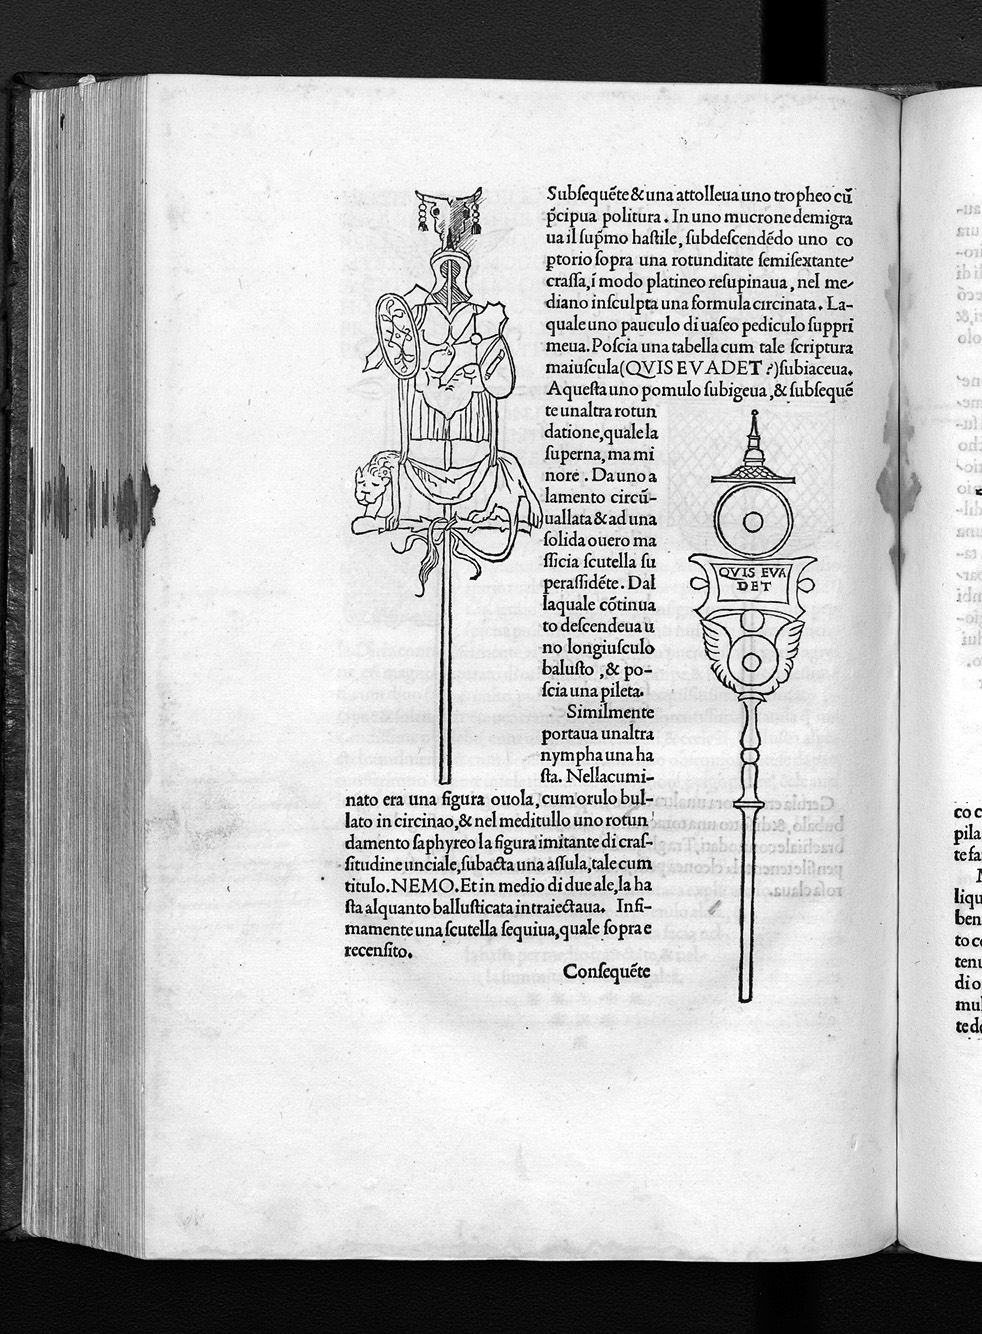 Subſequẽte & una attolleua uno tropheo cũ
p̃cipua politura. In uno mucrone demigra
ua il ſup̃mo haſtile, ſubdeſcendẽdo uno co
ptorio ſopra una rotunditate ſemiſextante
craſſa, ĩ modo platineo reſupinaua, nel me-
diano inſculpta una formula circinata. La-
quale uno pauculo di uaſeo pediculo ſuppri
meua. Poſcia una tabella cum tale ſcriptura
maiuſcula (QVIS EVADET?) ſubiaceua.
A queſta uno pomulo ſubigeua, & ſubſequẽ
te unaltra rotun
datione, quale la
ſuperna, ma mi
nore. Da uno a
lamento circũ-
uallata & ad una
ſolida ouero ma
ſſicia ſcutella ſu
peraſſidẽte. Dal
laquale cõtinua
to deſcendeua u
no longiuſculo
baluſto, & po-
ſcia una pileta.
Similmente
portaua unaltra
nympha una ha
ſta. Nellacumi-
nato era una figura ouola, cum orulo bul-
lato in circinao, & nel meditullo uno rotun
damento ſaphyreo la figura imitante di craſ-
ſitudine unciale, ſubacta una aſſula, tale cum
titulo. NEMO. Et in medio di due ale, la ha
ſta alquanto balluſticata intraiectaua. Infi-
mamente una ſcutella ſequiua, quale ſopra e
recenſito.
Conſequẽte
QVIS EVA
DET
co c
pila
te fa
liqu
ben
to co
tenu
di o
mul
te de